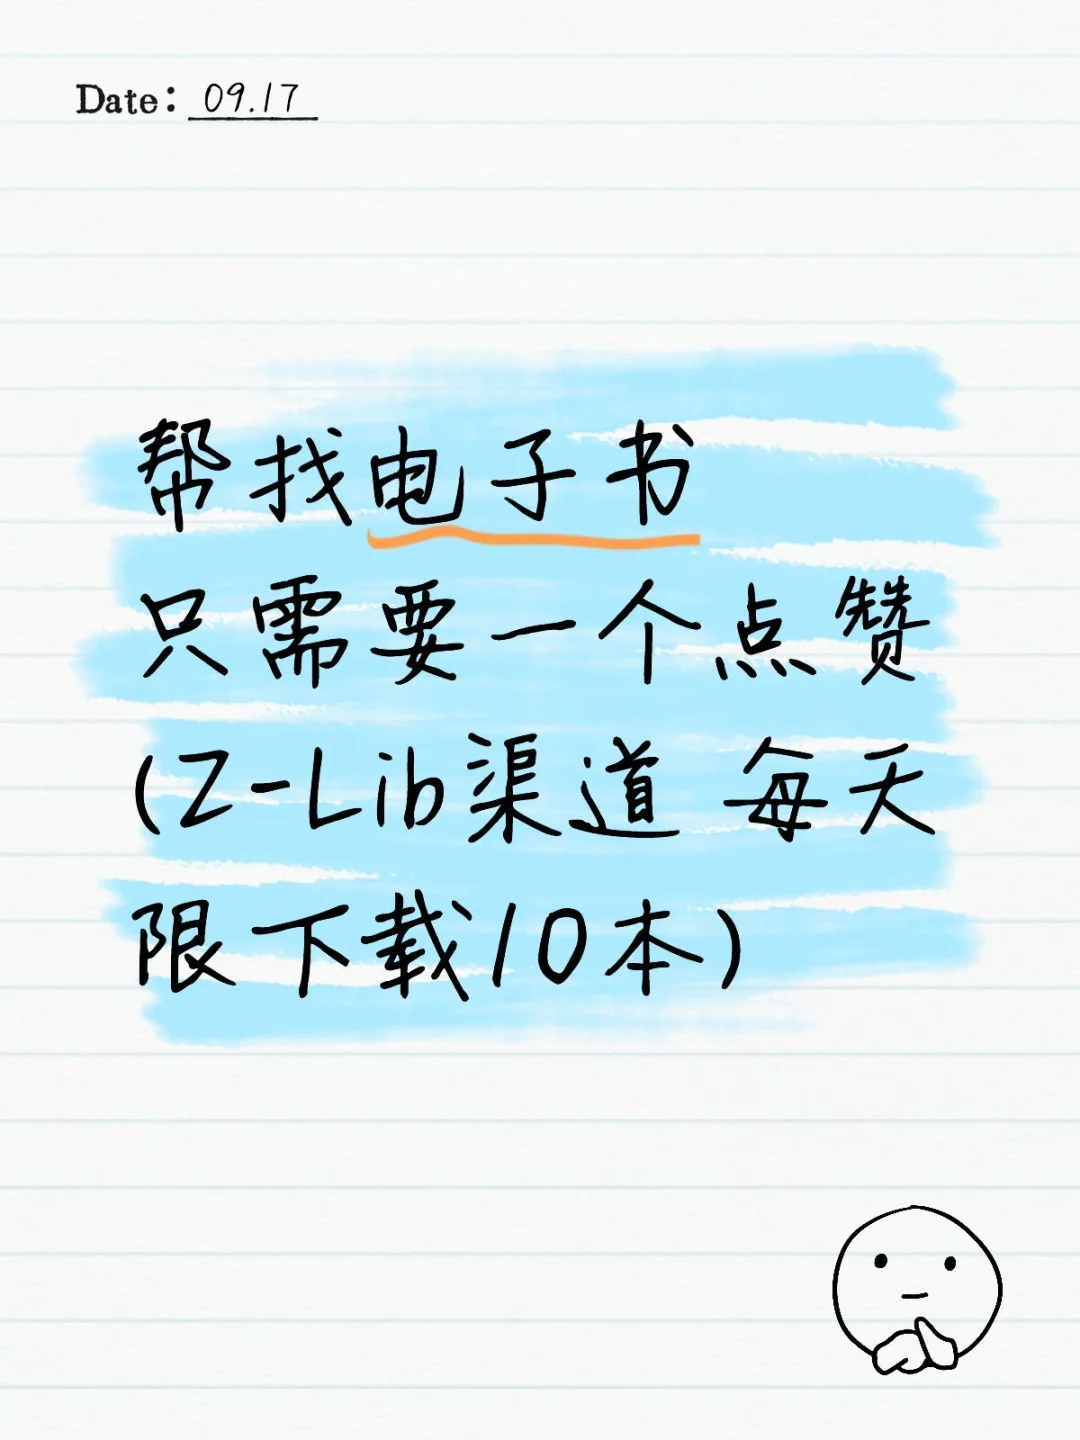 Date: 09.17
帮找电子书
只需要一个点赞
(Z-Lib渠道 每天
限下载10本)